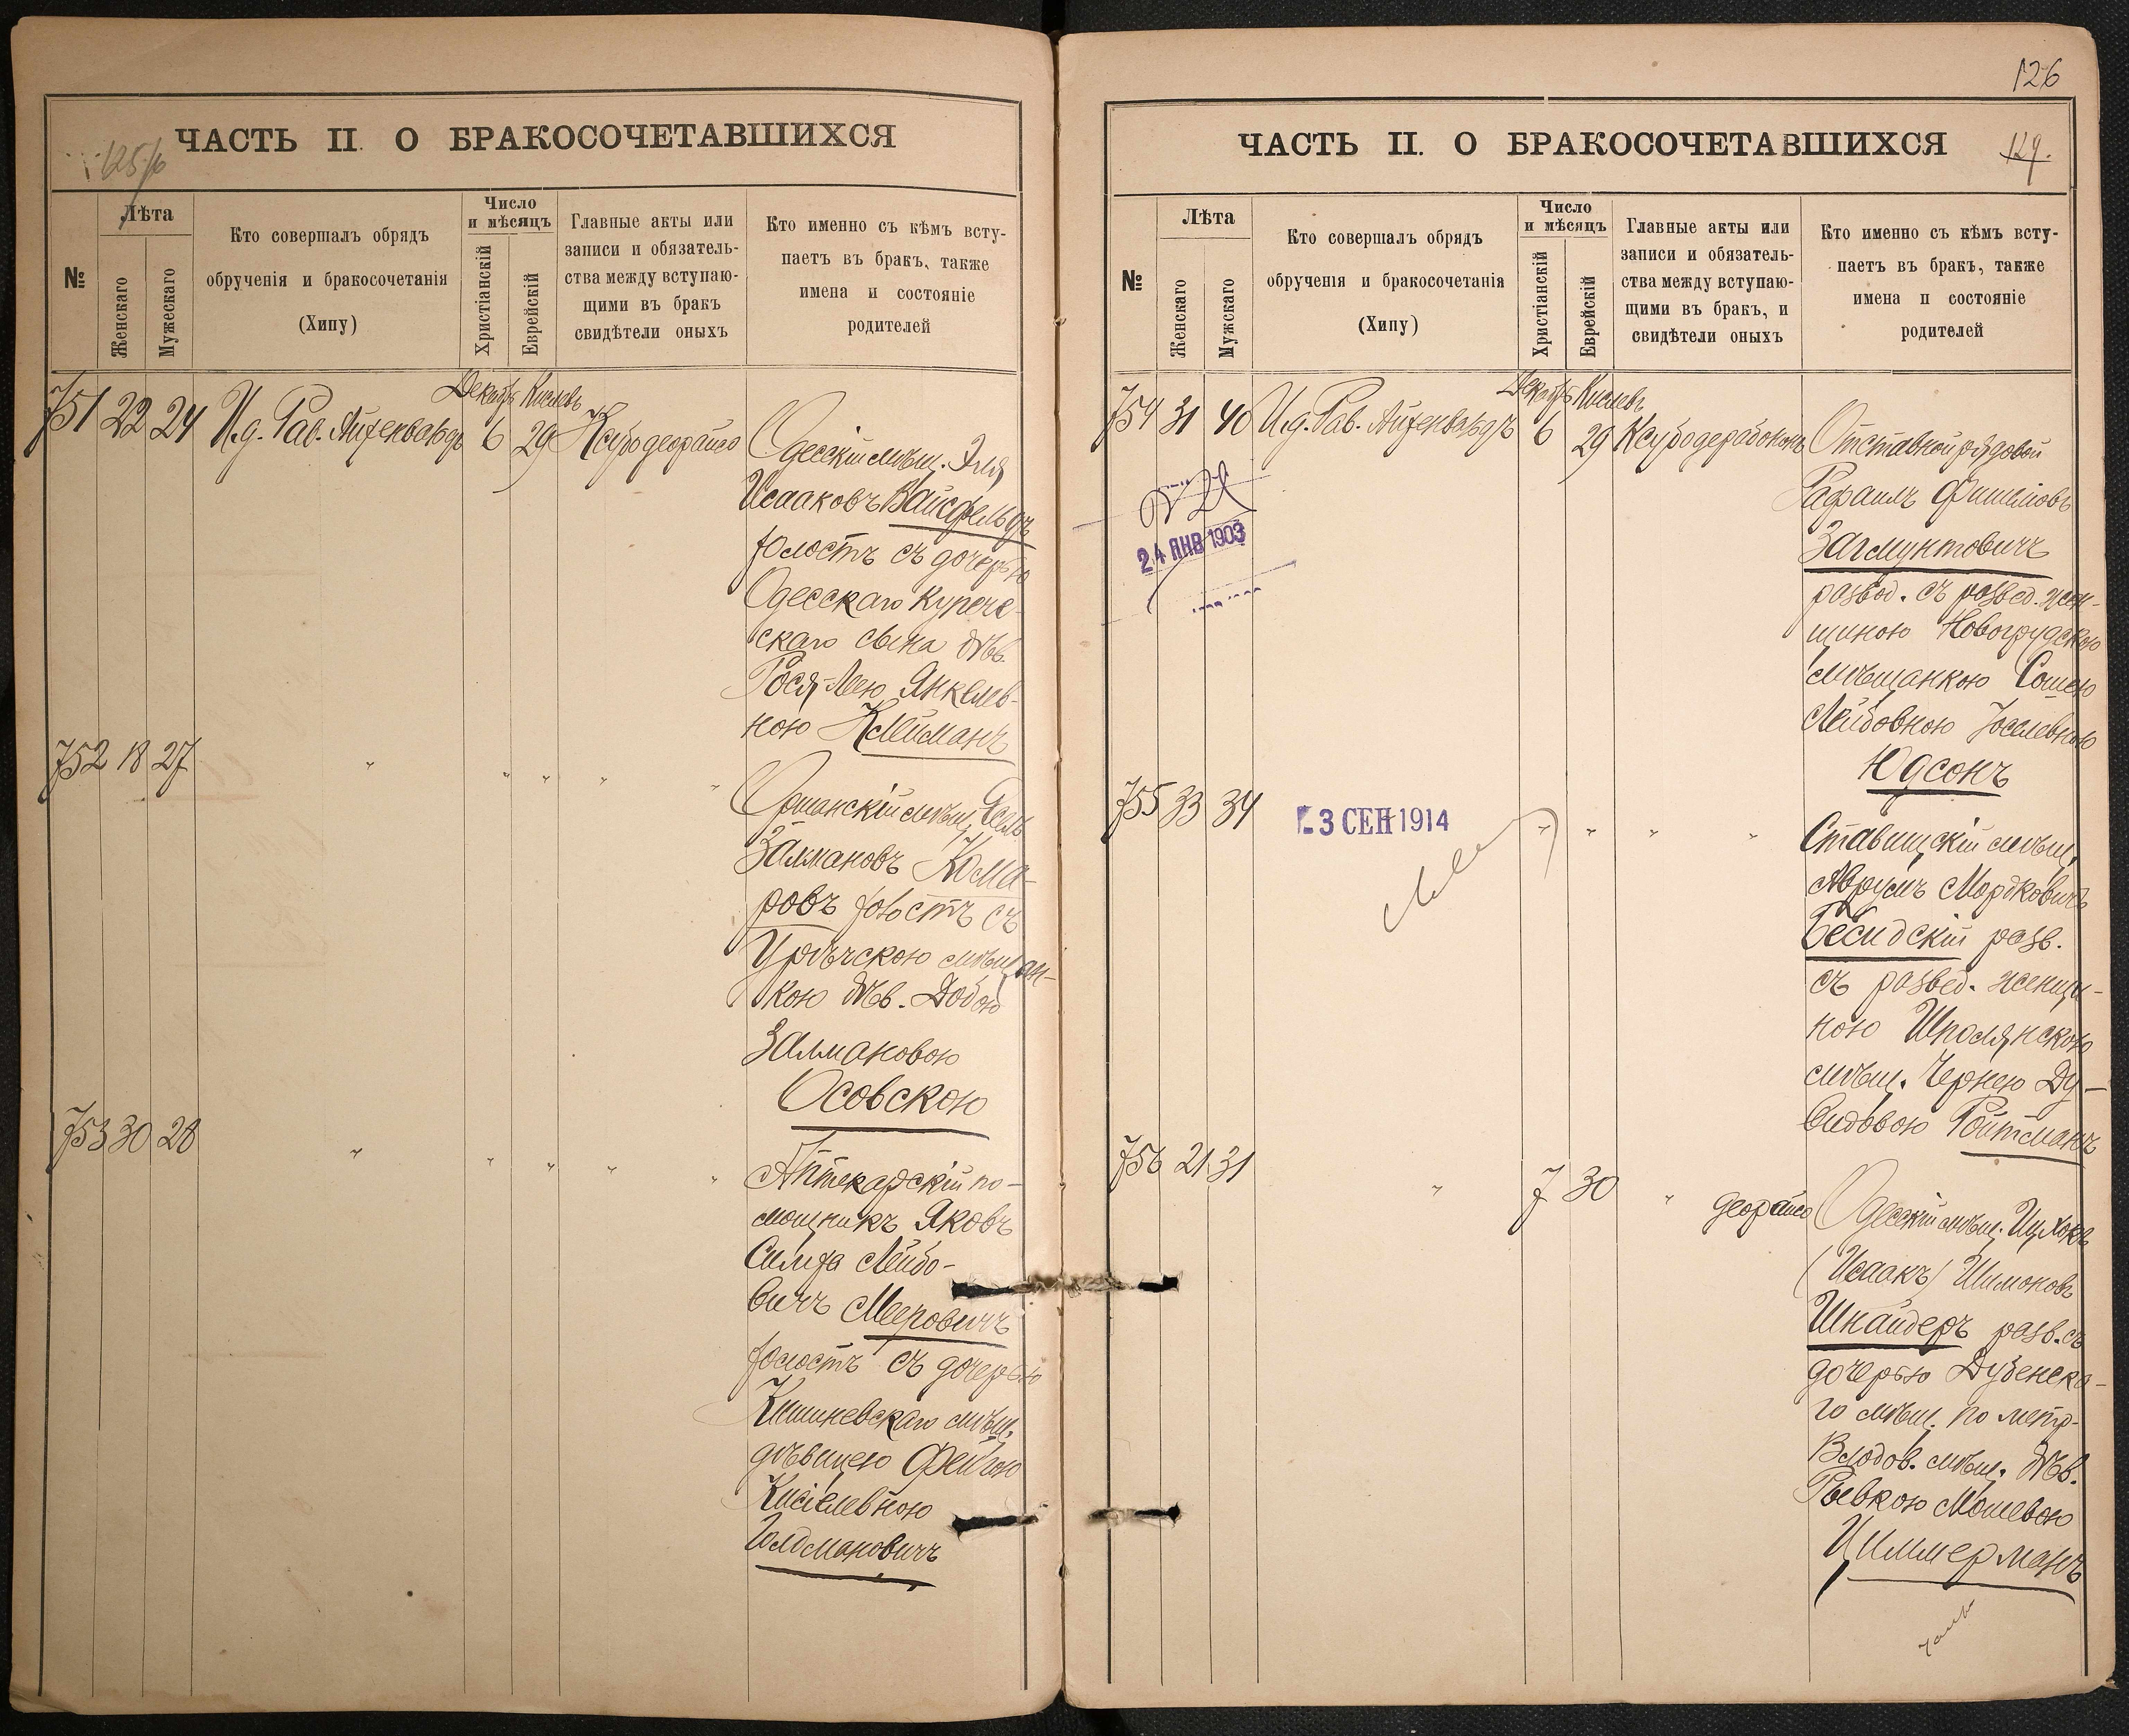 125/б
ЧАСТЬ II. О БРАКОСОЧЕТАВШИХСЯ
№
Лѣта
Женскаго
Мужескаго
Кто совершалъ обрядъ
обрученія и бракосочетанія
(Хипу)
Число
и мѣсяцъ
Христіанскій
Еврейскій
Главные акты или
записи и обязатель-
ства между вступаю-
щими въ бракъ
свидѣтели оныхъ
Кто именно съ кѣмъ всту-
паетъ въ бракъ, также
имена и состояніе
родителей
Декабрь Кислевъ
751 22 24 И.д. Рав. Айзенвальдъ 6 29
Одесскій мѣщ. Эля
Исааковъ Вайсфельдъ
холостъ съ дочерью
Одесскаго купече-
скаго сына дѣв.
Рося-Лею Янкелев-
ною Клейманъ
752 18 27 " " " " "
Оршанскій мѣщ.
Залмановъ Кома-
ровъ холостъ съ
Урѣчскою мѣщан-
кою дѣв. Добою
Залмановою
Осовскою
753 30 28 " " " " "
Аптекарскій по-
мощникъ Яковъ
Симха Лейбо-
вичъ Мееровичъ
холостъ съ дочерью
Кишиневскаго мѣщ.
дѣвицею Фейгою
Кисілевною
Голдмановичъ
126
ЧАСТЬ II. О БРАКОСОЧЕТАВШИХСЯ
127.
№
Лѣта
Женскаго
Мужскаго
Кто совершалъ обрядъ
обрученія и бракосочетанія
(Хипу)
Число
и мѣсяцъ
Христіанскій
Еврейскій
Главные акты или
записи и обязатель-
ства между вступаю-
щими въ бракъ, и
свидѣтели оныхъ
Кто именно съ кѣмъ всту-
паетъ въ бракъ, также
имена и состояніе
родителей
Декабрь Кислевъ
754 31 40 И.д. Рав. Айзенвальдъ 6 29
Отставной рядовой
Рафаилъ Фишелевъ
Загмунтовичъ
развод. съ развед. жен-
щиною Новогрудскою
мѣщанкою Сошею
Лейбовною Іоселевною
Юдсонъ
24 ЯНВ 1903
755 33 34 " " " "
3 СЕН 1914
Ставищскій мѣщ.
Аврумъ Мордковичъ
Бесидскій разв.
съ развед. женщи-
ною Шполянскою
мѣщ. Чернею Ду-
видовою Ройтманъ
756 21 31 " 7 30 "
Одесскій мѣщ. Ицхокъ
(Исаакъ) Шимоновъ
Шнайдеръ разв. съ
дочерью Дубенска-
го мѣщ. по метр.
Влодов. мѣщ. дѣв.
Ривкою Мошевою
Циммерманъ